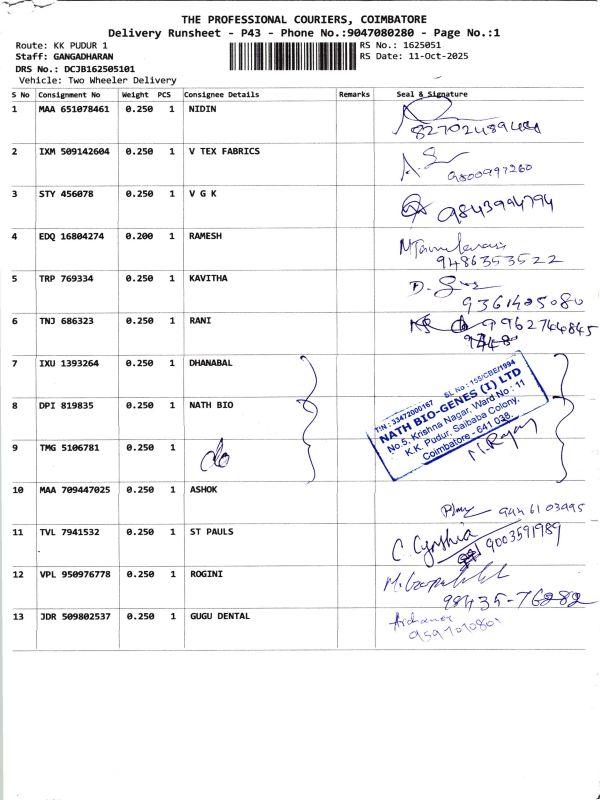 THE PROFESSIONAL COURIERS, COIMBATORE
Delivery Runsheet - P43 - Phone No.:9047080280 - Page No.:1
Route: KK PUDUR 1 RS No.: 1625051
Staff: GANGADHARAN RS Date: 11-Oct-2025
DRS No.: DCJB162505101
Vehicle: Two Wheeler Delivery
S No Consignment No Weight PCS Consignee Details Remarks Seal & Signature
1 MAA 651078461 0.250 1 NIDIN
2 IXM 509142604 0.250 1 V TEX FABRICS
9800997260
3 STY 456078 0.250 1 V G K
9843994794
4 EDQ 16804274 0.200 1 RAMESH
9486353522
5 TRP 769334 0.250 1 KAVITHA
9361425080
6 TNJ 686323 0.250 1 RANI
9962744845
7 IXU 1393264 0.250 1 DHANABAL
8 DPI 819835 0.250 1 NATH BIO
TIN : 33472000167 SL No : 155/CBE/1994
NATH BIO-GENES (I) LTD
No.5, Krishna Nagar, Ward No : 11
K.K. Pudur, Saibaba Colony,
Coimbatore - 641 038.
9 TMG 5106781 0.250 1 do
10 MAA 709447025 0.250 1 ASHOK
11 TVL 7941532 0.250 1 ST PAULS
C. Cynthia 9003591989
12 VPL 950976778 0.250 1 ROGINI
99435-76282
13 JDR 509802537 0.250 1 GUGU DENTAL
Archana